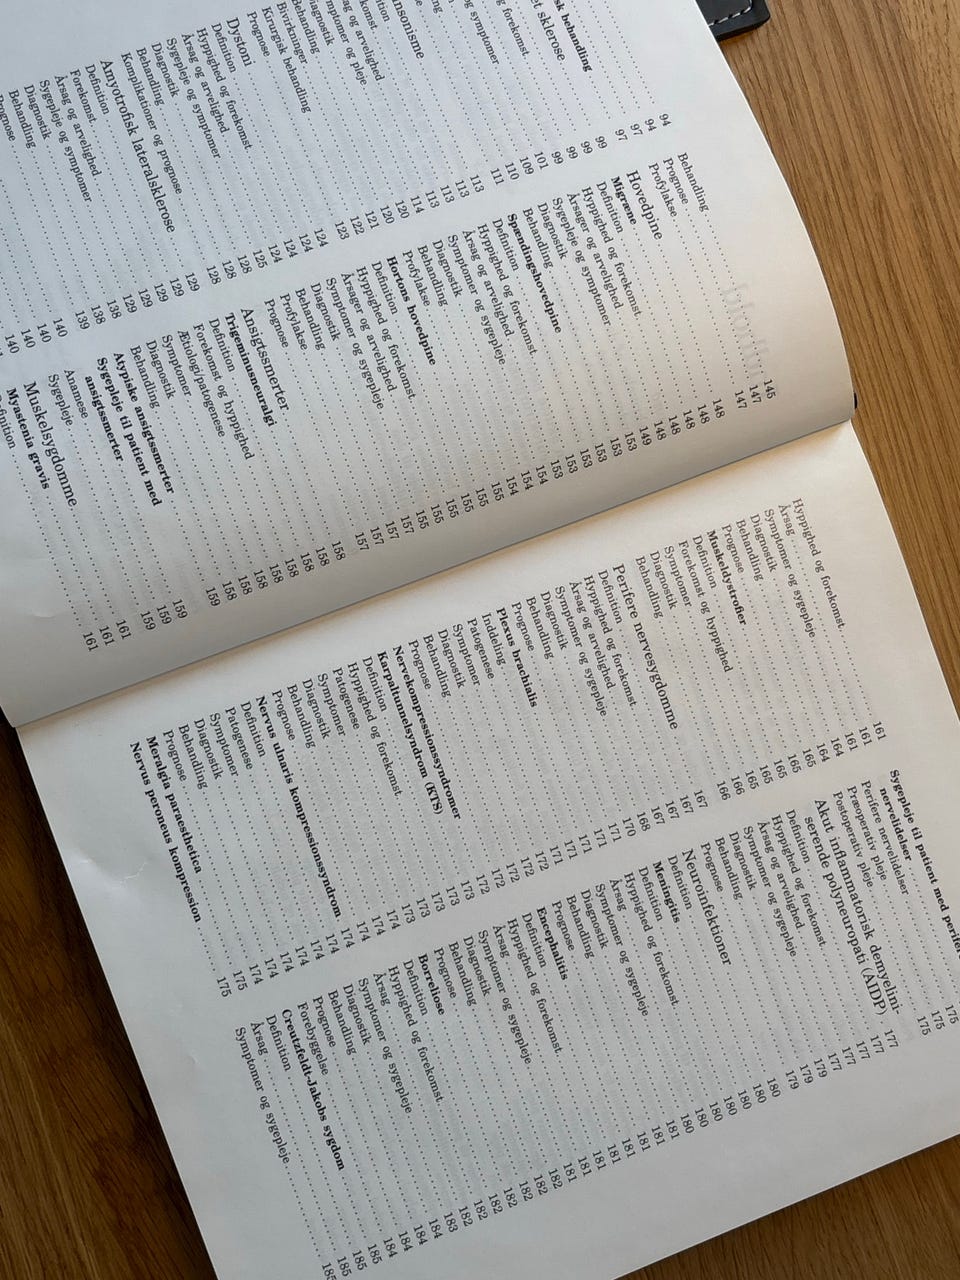 sk behandling 94
et sklerose 94
97
97
og forekomst 99
99
og symptomer 99
99
101
109
nsonisme 110
111
komst 113
sag og arvelighed 113
mptomer og pleje 113
agnostik 113
Behandling 114
Bivirkninger 120
Kirurgisk behandling 120
Prognose 121
Dystoni 122
Definition 123
Hyppighed og forekomst 124
Årsag og arvelighed 124
Sygepleje og symptomer 124
Diagnostik 124
Behandling 125
Komplikationer og prognose 128
Amyotrofisk lateralsklerose 128
Definition 128
Forekomst 129
Årsag og arvelighed 129
Sygepleje og symptomer 129
Diagnostik 129
Behandling 138
Prognose 138
139
140
140
140
Behandling 145
Prognose 147
Profylakse 147
Hovedpine 148
Migræne 148
Definition 148
Hyppighed og forekomst 148
Årsager og arvelighed 148
Sygepleje og symptomer 149
Diagnostik 153
Behandling 153
Spændingshovedpine 153
Definition 153
Hyppighed og forekomst 153
Årsag og arvelighed 153
Symptomer og sygepleje 154
Diagnostik 154
Behandling 154
Profylakse 155
Hortons hovedpine 155
Definition 155
Hyppighed og forekomst 155
Årsager og arvelighed 155
Symptomer og sygepleje 155
Diagnostik 157
Behandling 157
Profylakse 157
Prognose 157
Ansigtssmerter 158
Trigeminusneuralgi 158
Definition 158
Forekomst og hyppighed 158
Ætiologi/patogenese 158
Symptomer 158
Diagnostik 158
Behandling 158
Atypiske ansigtssmerter 159
Sygepleje til patient med
ansigtssmerter 159
Anamese 159
Sygepleje 161
Muskelsygdomme 161
Myastenia gravis 161
Definition
Hyppighed og forekomst 161
Årsag 161
Symptomer og sygepleje 161
Diagnostik 164
Behandling 164
Prognose 165
Muskeldystrofier 165
Definition 165
Forekomst og hyppighed 165
Symptomer 165
Diagnostik 166
Behandling 166
Perifere nervesygdomme 167
Definition 167
Hyppighed og forekomst 167
Årsag og arvelighed 167
Symptomer og sygepleje 168
Diagnostik 170
Behandling 171
Prognose 171
Plexus brachialis 171
Inddeling 171
Patogenese 171
Symptomer 172
Diagnostik 172
Behandling 172
Prognose 172
Nervekompressionssyndromer 172
Karpaltunnelsyndrom (KTS) 173
Definition 173
Hyppighed og forekomst 173
Patogenese 173
Symptomer 174
Diagnostik 174
Behandling 174
Prognose 174
Nervus ulnaris kompressionssyndrom 174
Definition 174
Patogenese 174
Symptomer 174
Diagnostik 174
Behandling 174
Prognose 174
Meralgia paraesthetica 175
Nervus peroneus kompression 175
Sygepleje til patient med perifere
nervelidelser
Perifere nervelidelser 175
Præoperativ pleje 175
Postoperativ pleje 175
Akut inflammatorisk demyelini-
serende polyneuropati (AIDP) 177
Definition 177
Hyppighed og forekomst 177
Årsag og arvelighed 177
Symptomer og sygepleje 179
Diagnostik 179
Behandling 179
Prognose 180
Neuroinfektioner 180
Definition 180
Meningitis 180
Definition 180
Hyppighed og forekomst 180
Årsag 180
Symptomer og sygepleje 181
Diagnostik 181
Behandling 181
Prognose 181
Encephalitis 181
Definition 181
Hyppighed og forekomst 181
Årsag 181
Symptomer og sygepleje 182
Diagnostik 182
Behandling 182
Prognose 182
Borreliose 182
Definition 182
Hyppighed og forekomst 183
Årsag 184
Symptomer og sygepleje 184
Diagnostik 184
Behandling 184
Prognose 185
Forebyggelse 185
Creutzfeldt-Jakobs sygdom 185
Definition
Årsag
Symptomer og sygepleje